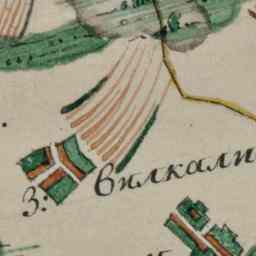 3: вилкали